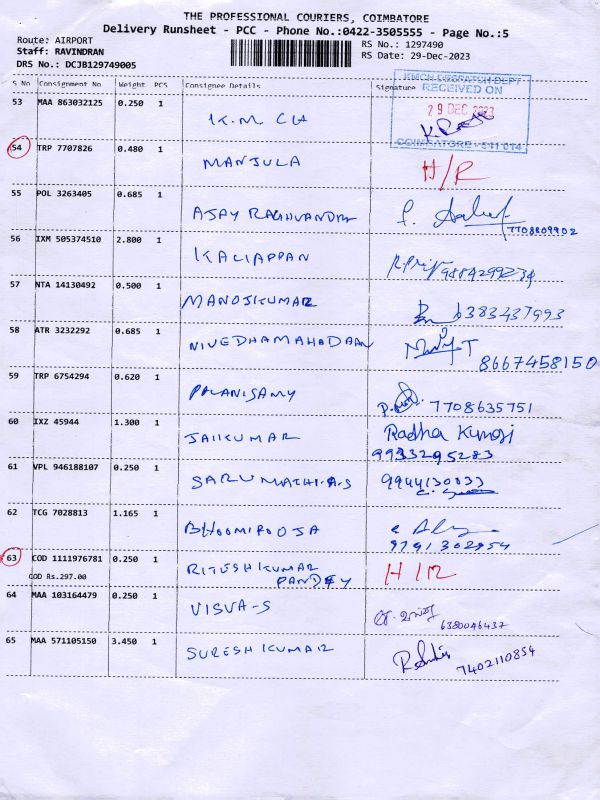 THE PROFESSIONAL COURIERS, COIMBATORE
Delivery Runsheet - PCC - Phone No.:0422-3505555 - Page No.:5
Route: AIRPORT
Staff: RAVINDRAN
DRS No.: DCJB129749005
RS No.: 1297490
RS Date: 29-Dec-2023
S No Consignment No Weight PCS Consignee Details Signature
KMCH DESPATCH DEPT
RECEIVED ON
29 DEC 2023
COIMBATORE - 641 014
53 MAA 863032125 0.250 1 K.M CH
54 TRP 7707826 0.480 1 MANJULA H/R
55 POL 3263405 0.685 1 AJAY RAGHVANDRA 7708809902
56 IXM 505374510 2.800 1 KALIAPPAN 9884299234
57 NTA 14130492 0.500 1 MANOJKUMAR 6383437993
58 ATR 3232292 0.685 1 NIVEDHAMAHADAAN 8667458150
59 TRP 6754294 0.620 1 PALANISAMY 7708635751
60 IXZ 45944 1.300 1 JAIKUMAR Radha Kumari
9933295283
61 VPL 946188107 0.250 1 SARUMATHI.A.S 9944130033
62 TCG 7028813 1.165 1 BHOOMIPOOJA
9791302954
63 COD 1111976781 0.250 1 RITESHKUMAR PANDEY H/R
COD Rs.297.00
64 MAA 103164479 0.250 1 VISVA-S 6380046437
65 MAA 571105150 3.450 1 SURESHKUMAR 7402110854